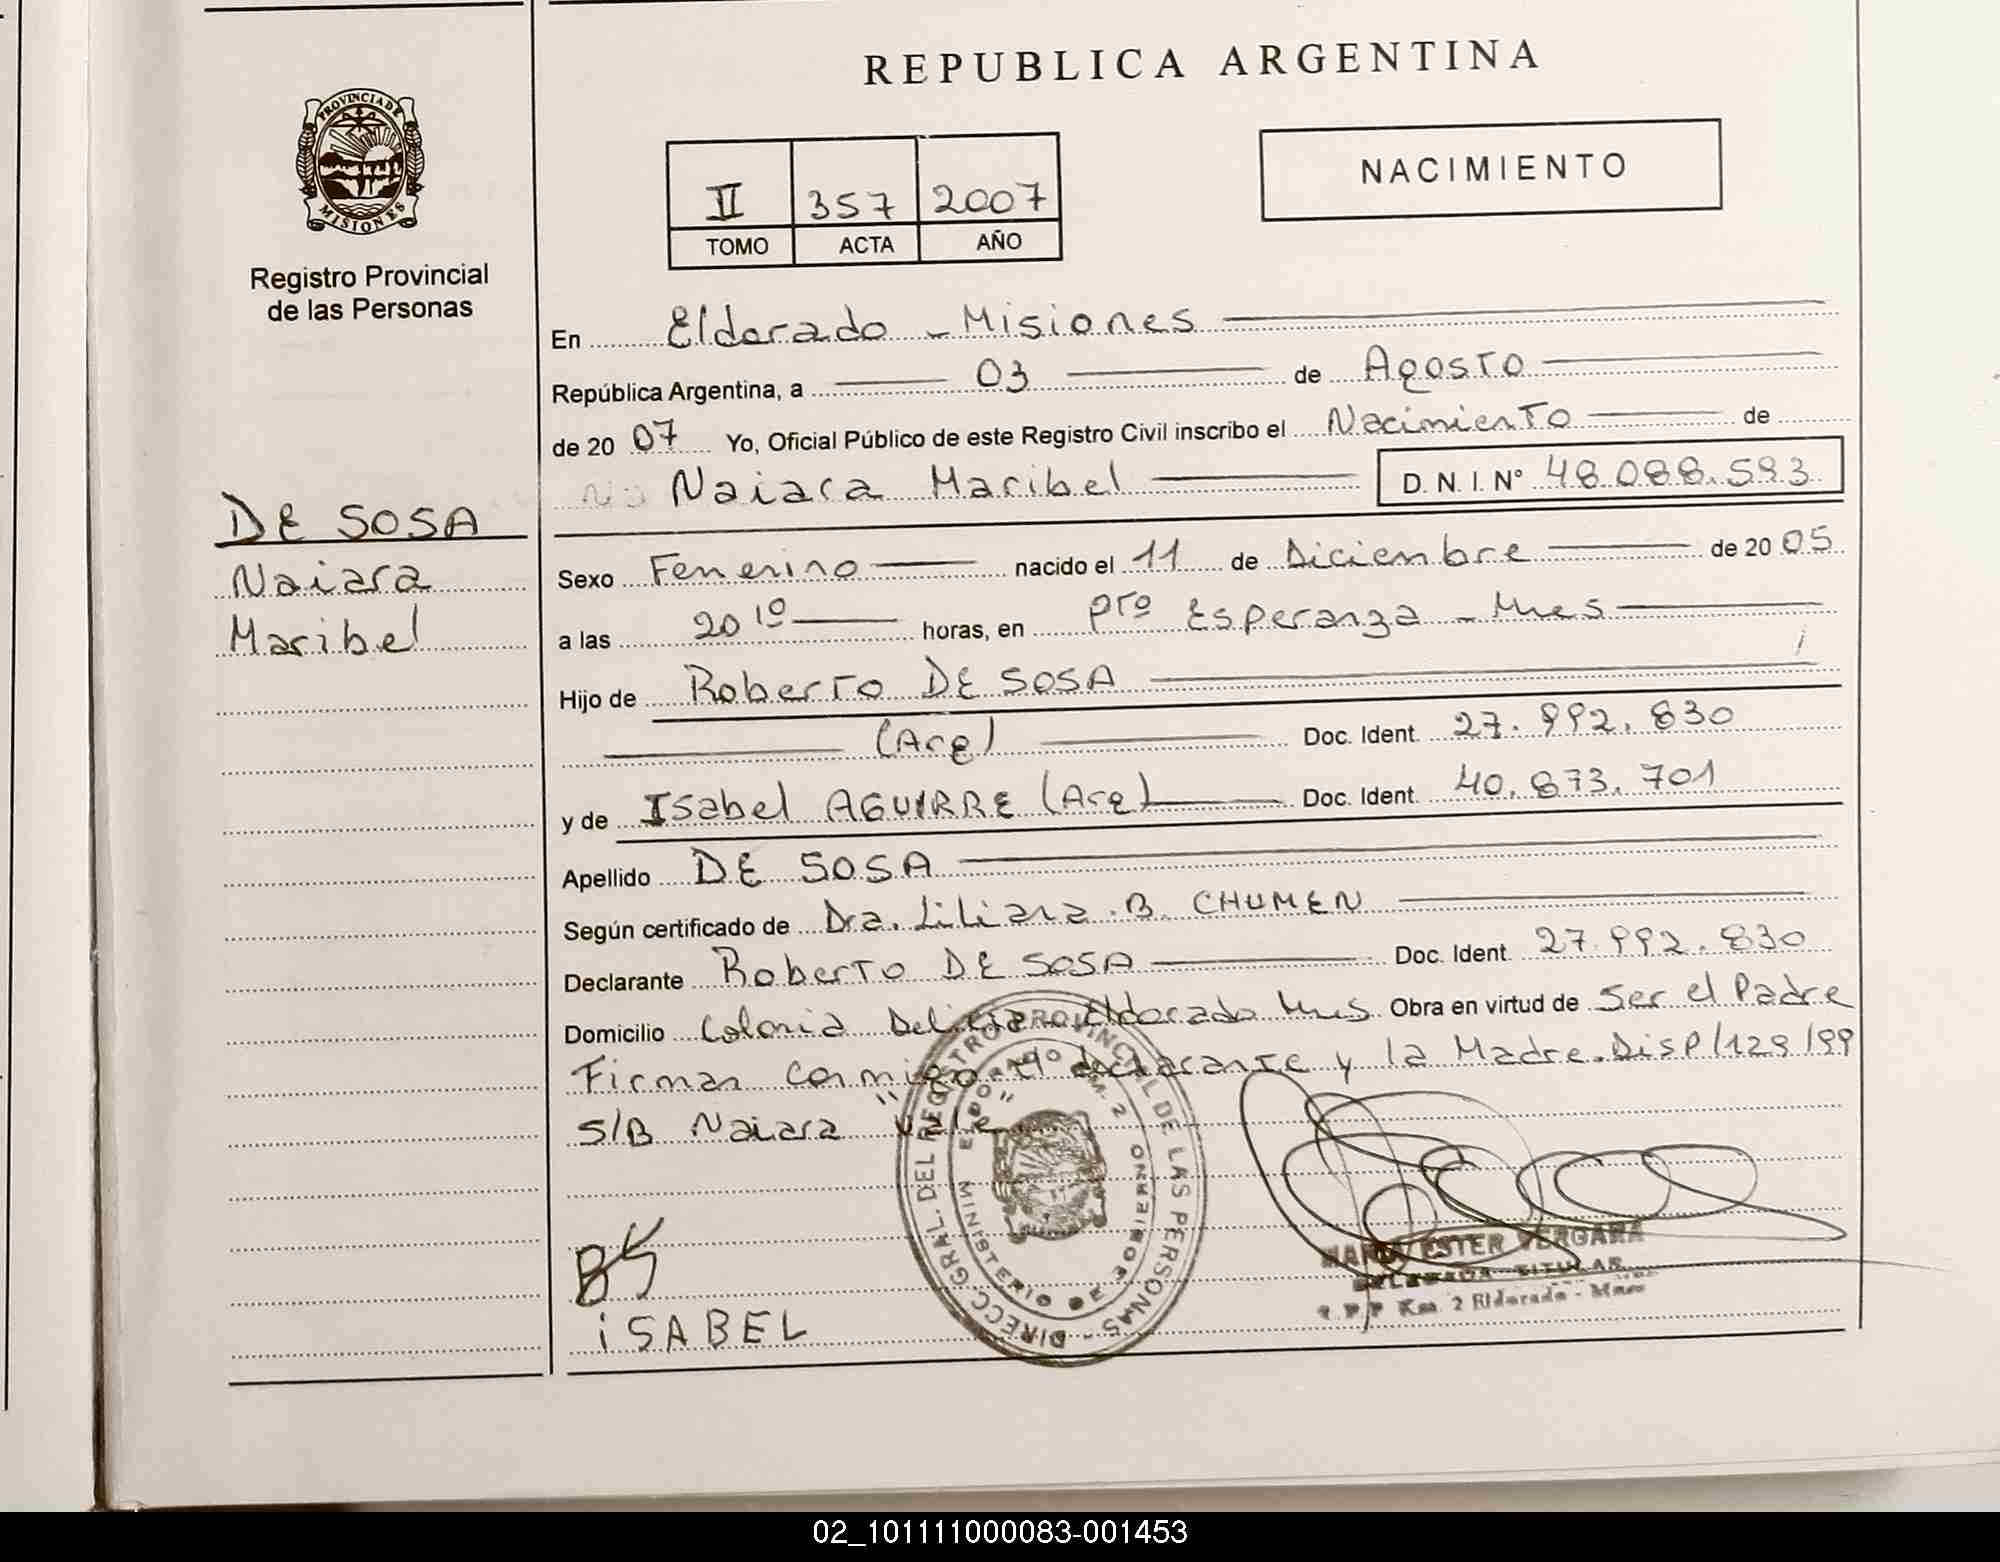 REPUBLICA ARGENTINA
PROVINCIA DE
MISIONES
Registro Provincial
de las Personas
II 357 2007
TOMO ACTA AÑO
NACIMIENTO
En Eldorado - Misiones
República Argentina, a 03 de Agosto
de 20 07 Yo, Oficial Público de este Registro Civil inscribo el Nacimiento de
Naiara Maribel D. N. I. Nº 48.088.593
DE SOSA
Naiara
Maribel
Sexo Femenino nacido el 11 de Diciembre de 20 05
a las 20 10 horas, en Pto Esperanza - Mnes
Hijo de Roberto DE SOSA
(Arg) Doc. Ident. 27.992.830
y de Isabel AGUIRRE (Arg) Doc. Ident. 40.873.701
Apellido DE SOSA
Según certificado de Dra. Liliana B. CHUMEN
Declarante Roberto DE SOSA Doc. Ident. 27.992.830
Domicilio Colonia Delicia Eldorado Mnes Obra en virtud de Ser el Padre
Firman conmigo el declarante y la Madre. Disp/129/99
S/B Naiara "Vale"
DIRECC. GRAL. DEL REGISTRO PROVINCIAL DE LAS PERSONAS
MINISTERIO DE GOBIERNO
ELDORADO KM. 2
ESTER VERGARA
TITULAR
Km. 2 Eldorado - Mnes
ISABEL
02_101111000083-001453